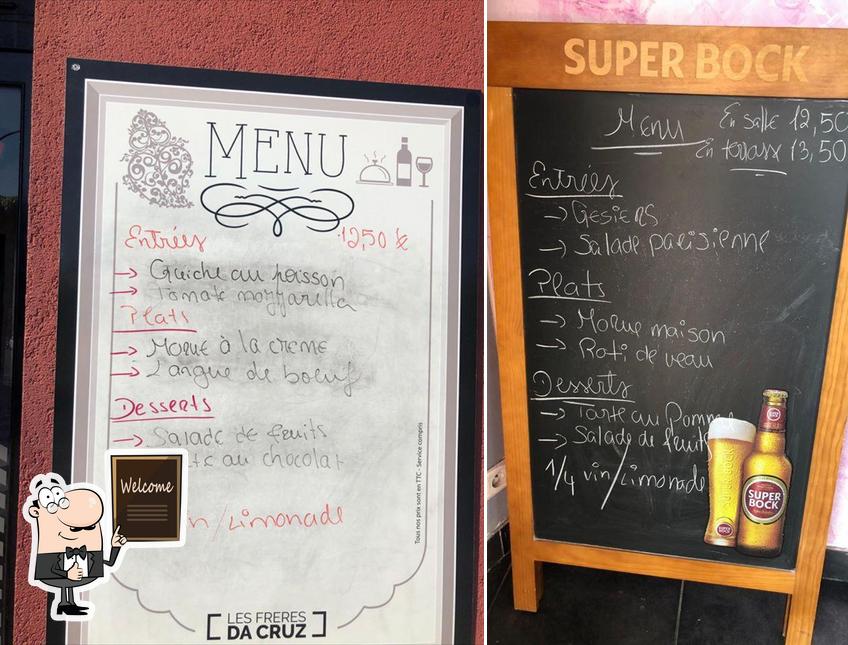 MENU
Entrées 12,50 €
→ Quiche au poisson
→ Tomate mozzarella
Plats
→ Morue à la creme
→ Langue de boeuf
Desserts
→ Salade de fruits
au chocolat
/Limonade
Tous nos prix sont en TTC - Service compris
LES FRERES
DA CRUZ
Welcome
SUPER BOCK
Menu En salle 12,50
En terrasse 13,50
Entrées
→ Gesiers
→ Salade parisienne
Plats
→ Morue maison
→ Roti de veau
Desserts
→ Tarte au Pomme
→ Salade de fruits
1/4 vin/Limonade
SUPER
BOCK